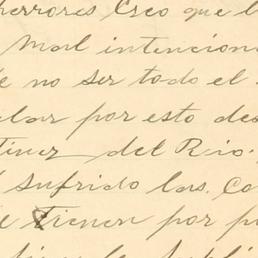 herrores Creo que l
Mal intencion
e no ser todo el
lar por esto des
tinez del Rio.
sufrido las. Co
e tienen por p